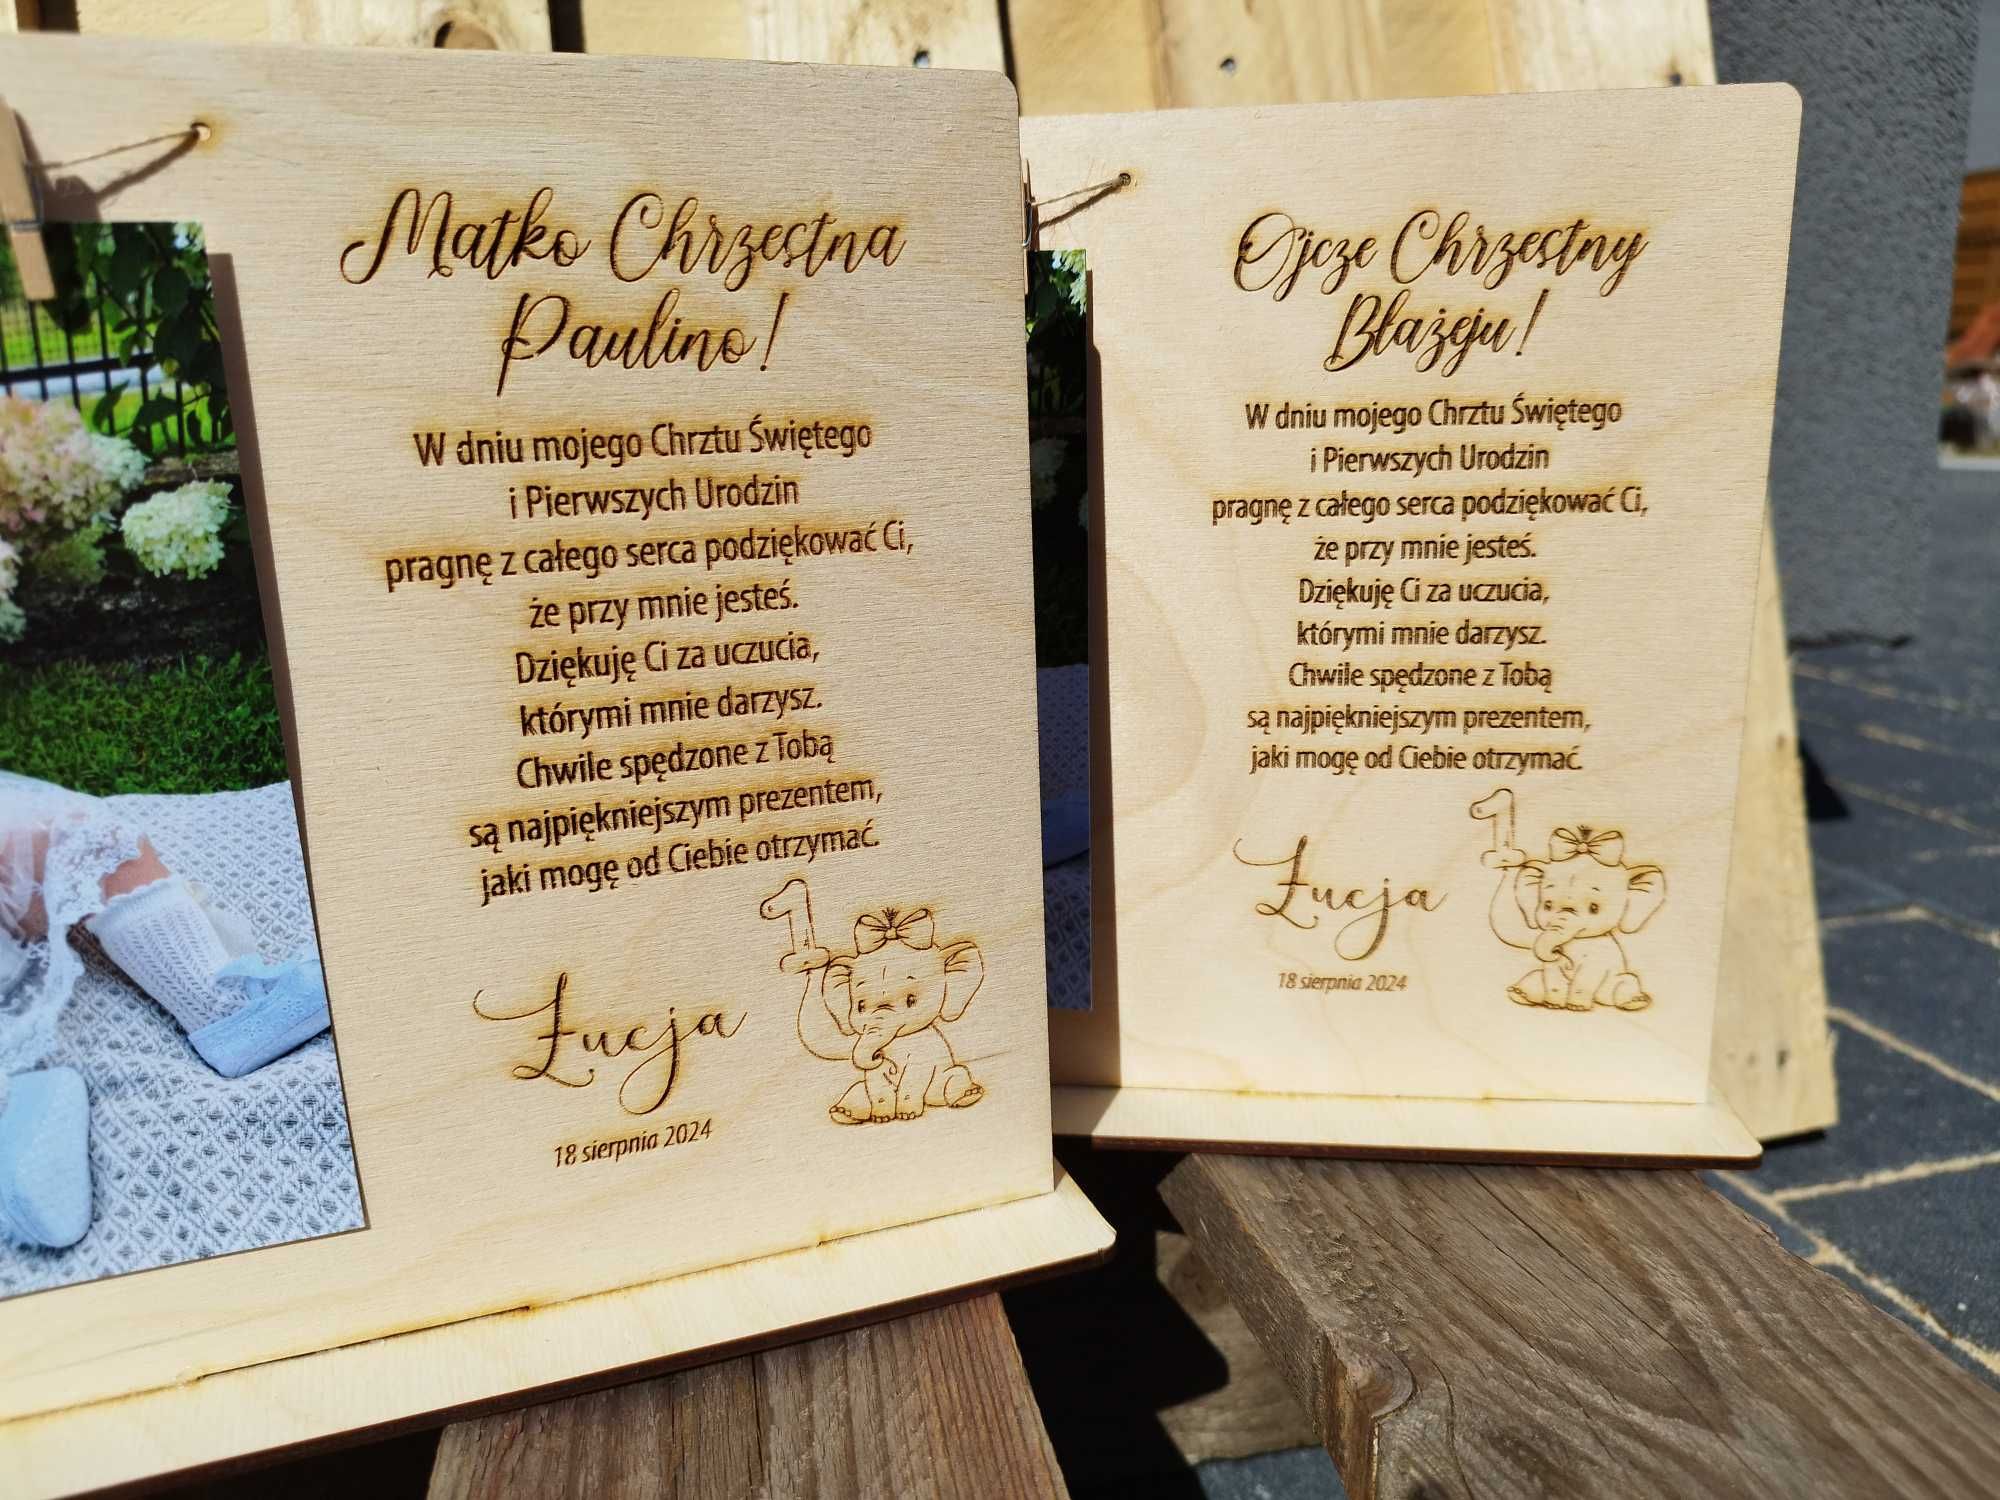 Matko Chrzestna
Paulino!
W dniu mojego Chrztu Świętego
i Pierwszych Urodzin
pragnę z całego serca podziękować Ci,
że przy mnie jesteś.
Dziękuję Ci za uczucia,
którymi mnie darzysz.
Chwile spędzone z Tobą
są najpiękniejszym prezentem,
jaki mogę od Ciebie otrzymać.
1
Łucja
18 sierpnia 2024
Ojcze Chrzestny
Błażeju!
W dniu mojego Chrztu Świętego
i Pierwszych Urodzin
pragnę z całego serca podziękować Ci,
że przy mnie jesteś.
Dziękuję Ci za uczucia,
którymi mnie darzysz.
Chwile spędzone z Tobą
są najpiękniejszym prezentem,
jaki mogę od Ciebie otrzymać.
1
Łucja
18 sierpnia 2024